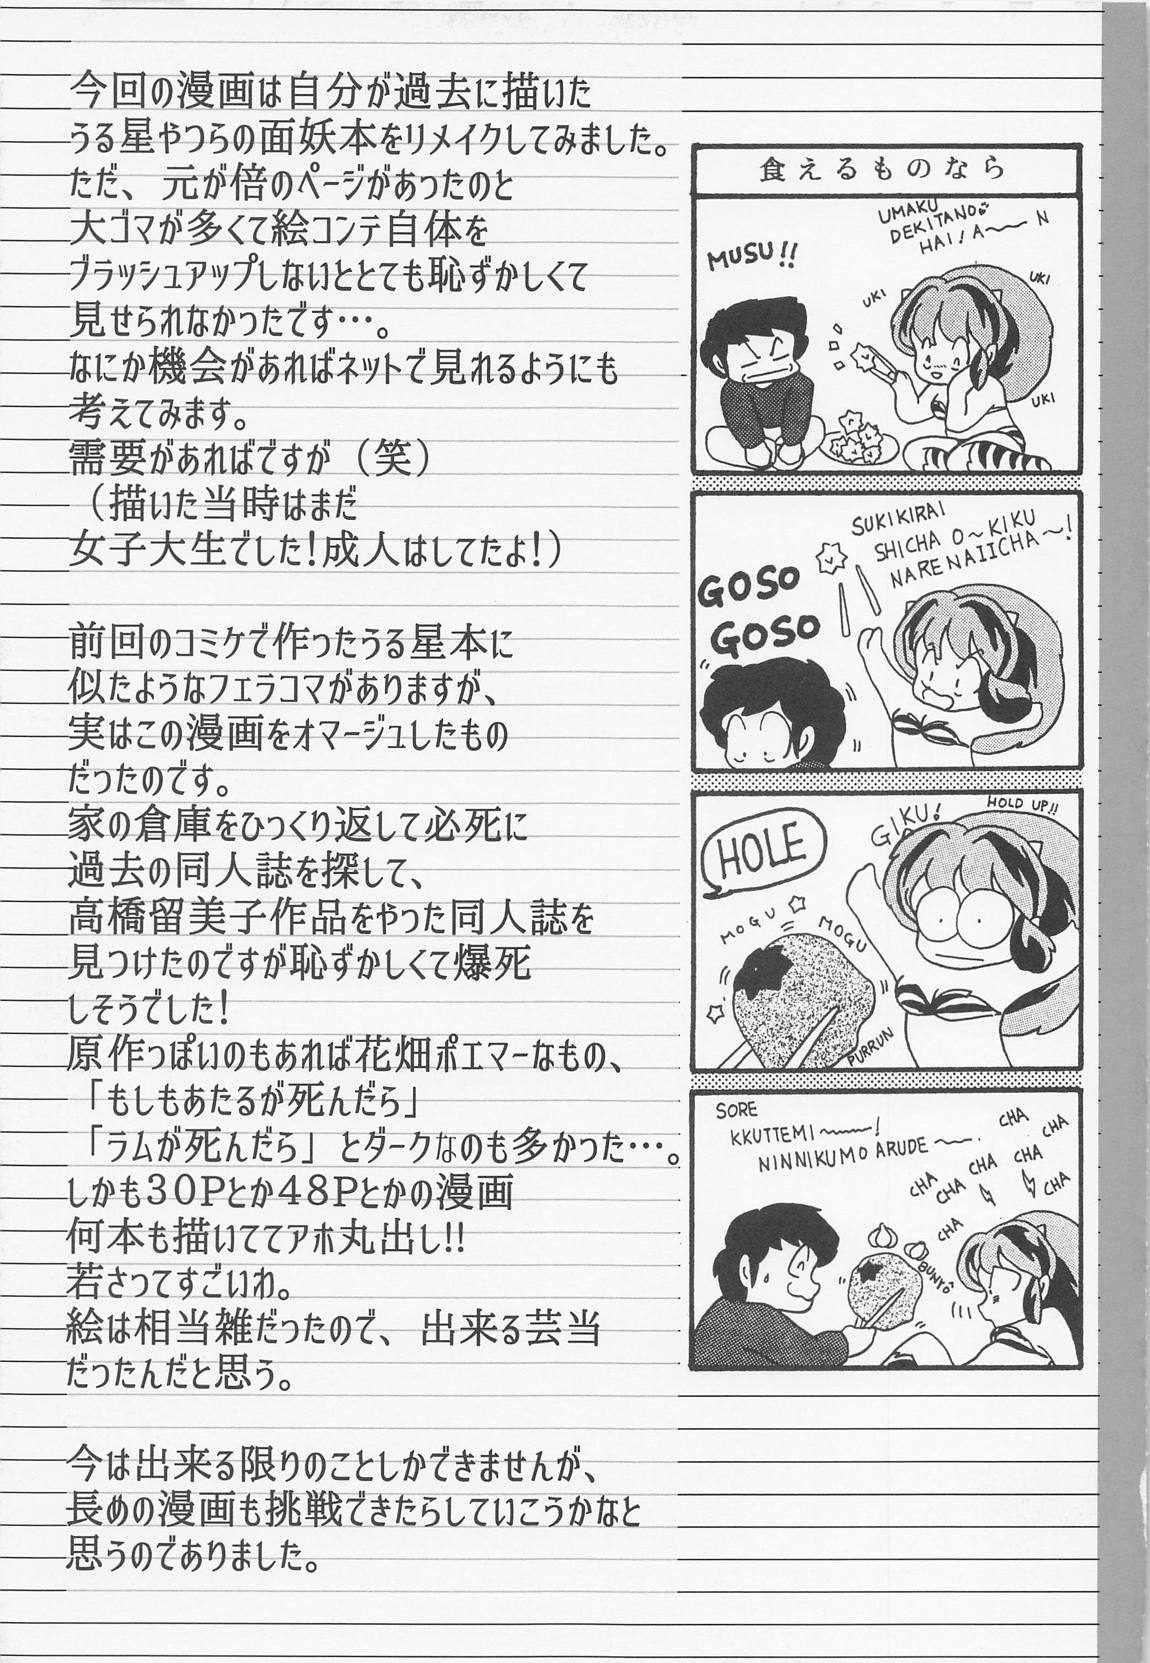 今回の漫画は自分が過去に描いた
うる星やつらの面妖本をリメイクしてみました。
ただ、元が倍のページがあったのと
大ゴマが多くて絵コンテ自体を
ブラッシュアップしないととても恥ずかしくて
見せられなかったです…。
なにか機会があればネットで見れるようにも
考えてみます。
需要があればですが（笑）
（描いた当時はまだ
女子大生でした！成人はしてたよ！）
前回のコミケで作ったうる星本に
似たようなフェラコマがありますが、
実はこの漫画をオマージュしたもの
だったのです。
家の倉庫をひっくり返して必死に
過去の同人誌を探して、
高橋留美子作品をやった同人誌を
見つけたのですが恥ずかしくて爆死
しそうでした！
原作っぽいのもあれば花畑ポエマーなもの、
「もしもあたるが死んだら」
「ラムが死んだら」とダークなのも多かった…。
しかも30Pとか48Pとかの漫画
何本も描いててアホ丸出し!!
若さってすごいわ。
絵は相当雑だったので、出来る芸当
だったんだと思う。
今は出来る限りのことしかできませんが、
長めの漫画も挑戦できたらしていこうかなと
思うのでありました。
食えるものなら
UMAKU
DEKITANO
HAI! A〜N
MUSU!!
UKI
UKI
UKI
SUKIKIRAI
SHICHA O〜KIKU
NARENAIICHA〜!
GOSO
GOSO
HOLD UP!!
GIKU!
HOLE
MOGU
MOGU
PURRUN
SORE
KKUTTEMI〜!
NINNIKUMO ARUDE〜.
CHA
CHA
CHA
CHA
CHA
CHA
CHA
CHA
BUNYO